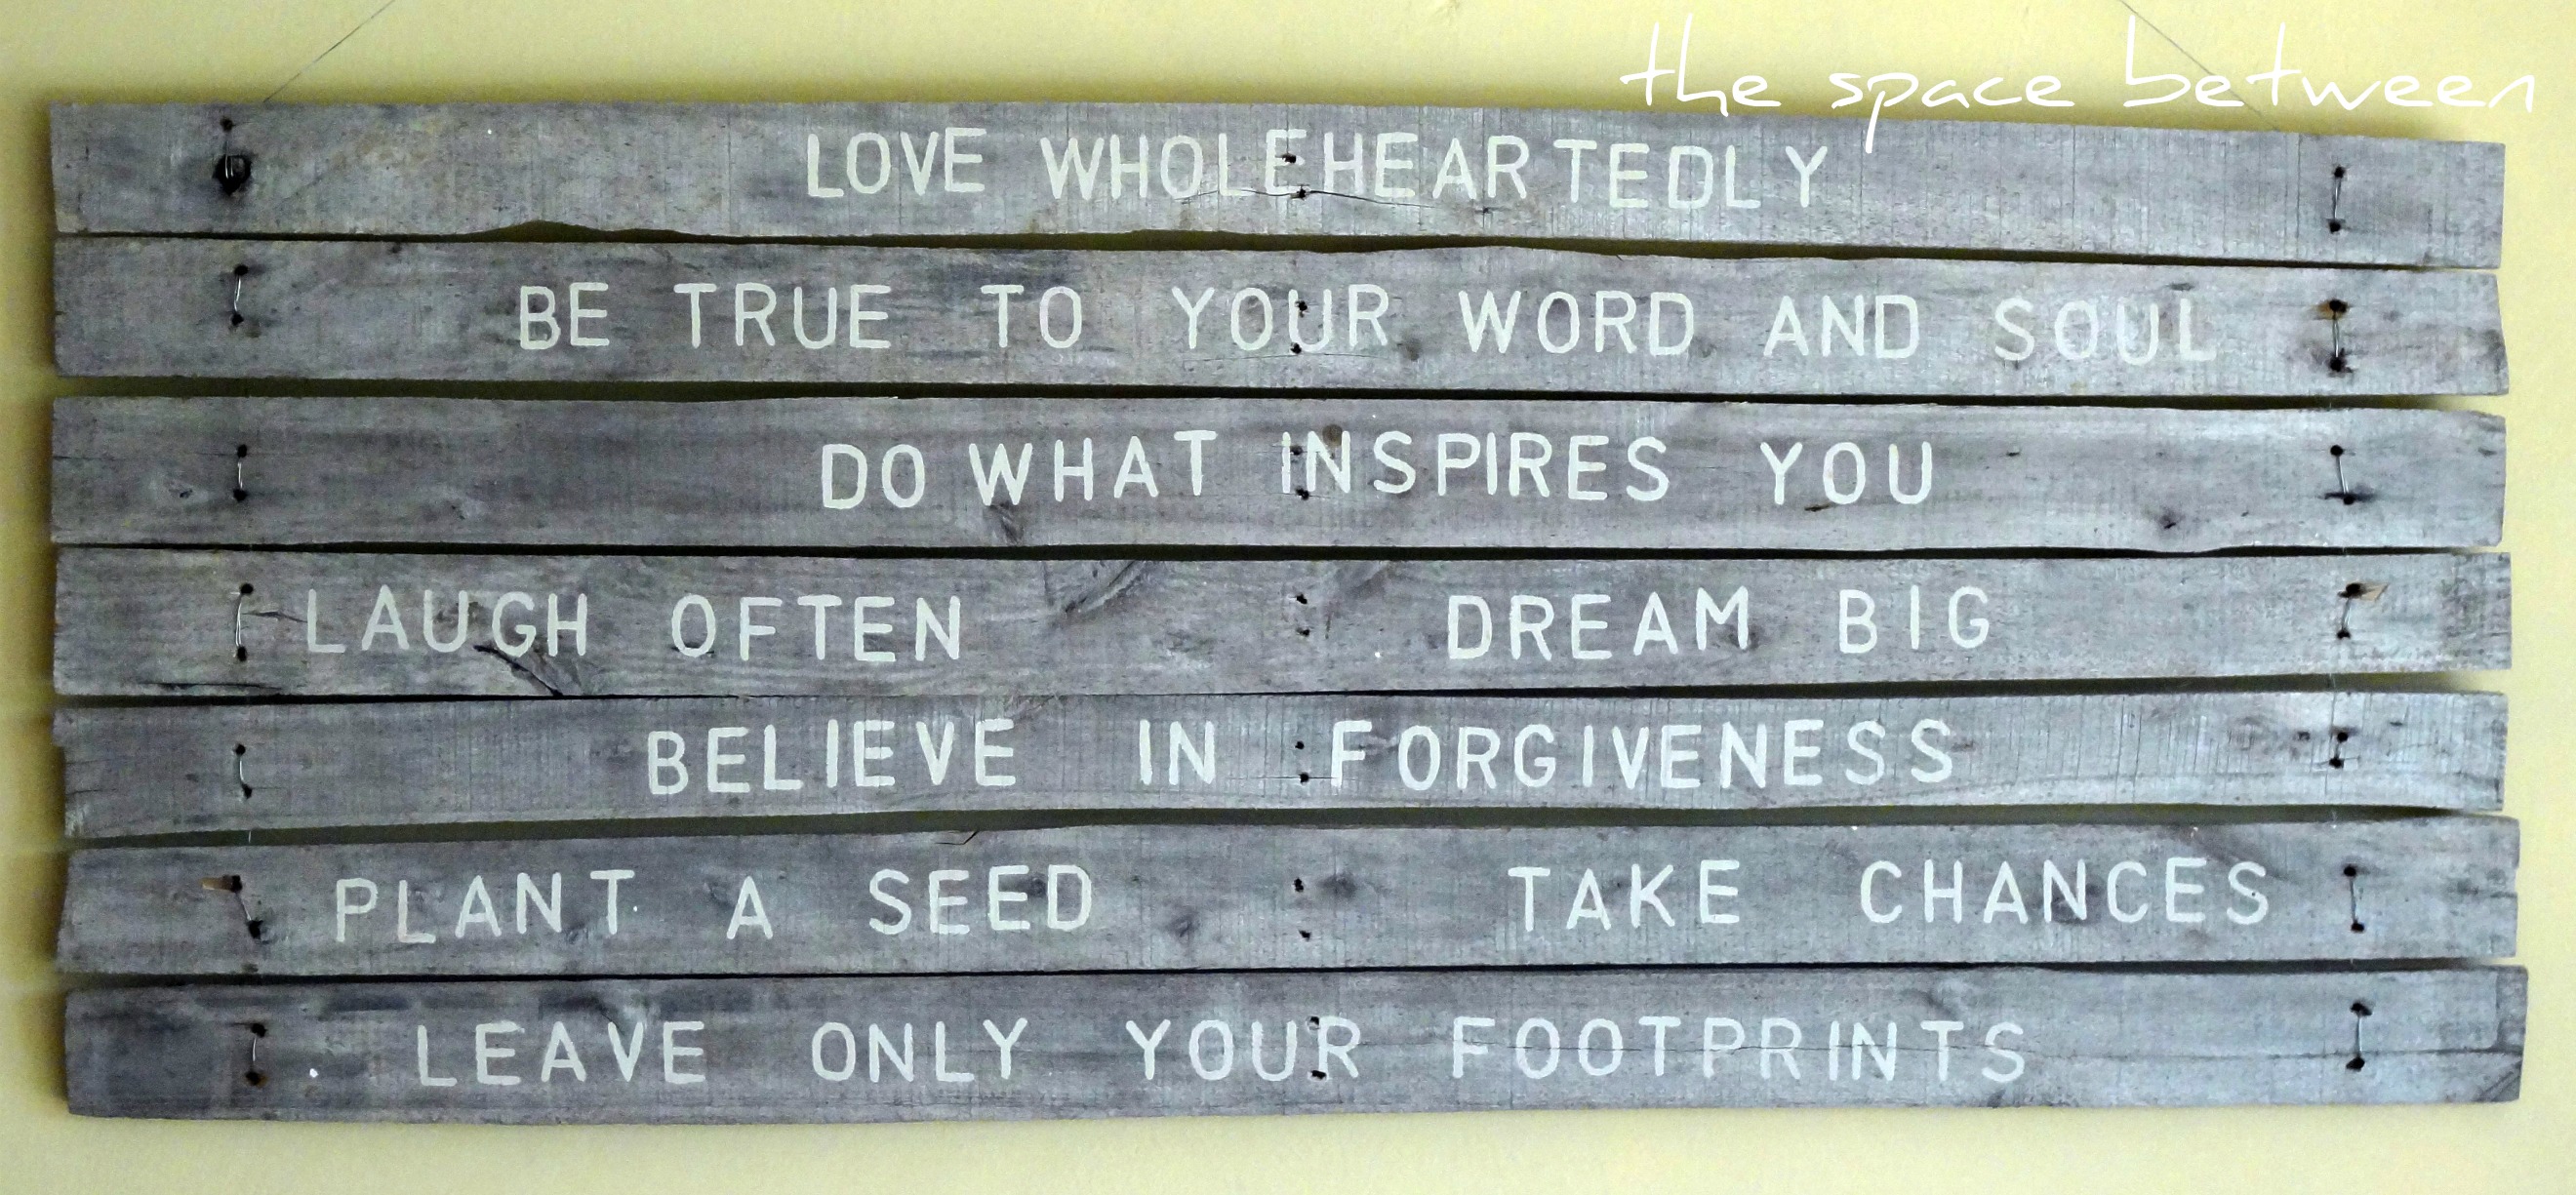 the space between
LOVE WHOLEHEARTEDLY
BE TRUE TO YOUR WORD AND SOUL
DO WHAT INSPIRES YOU
LAUGH OFTEN DREAM BIG
BELIEVE IN FORGIVENESS
PLANT A SEED TAKE CHANCES
LEAVE ONLY YOUR FOOTPRINTS